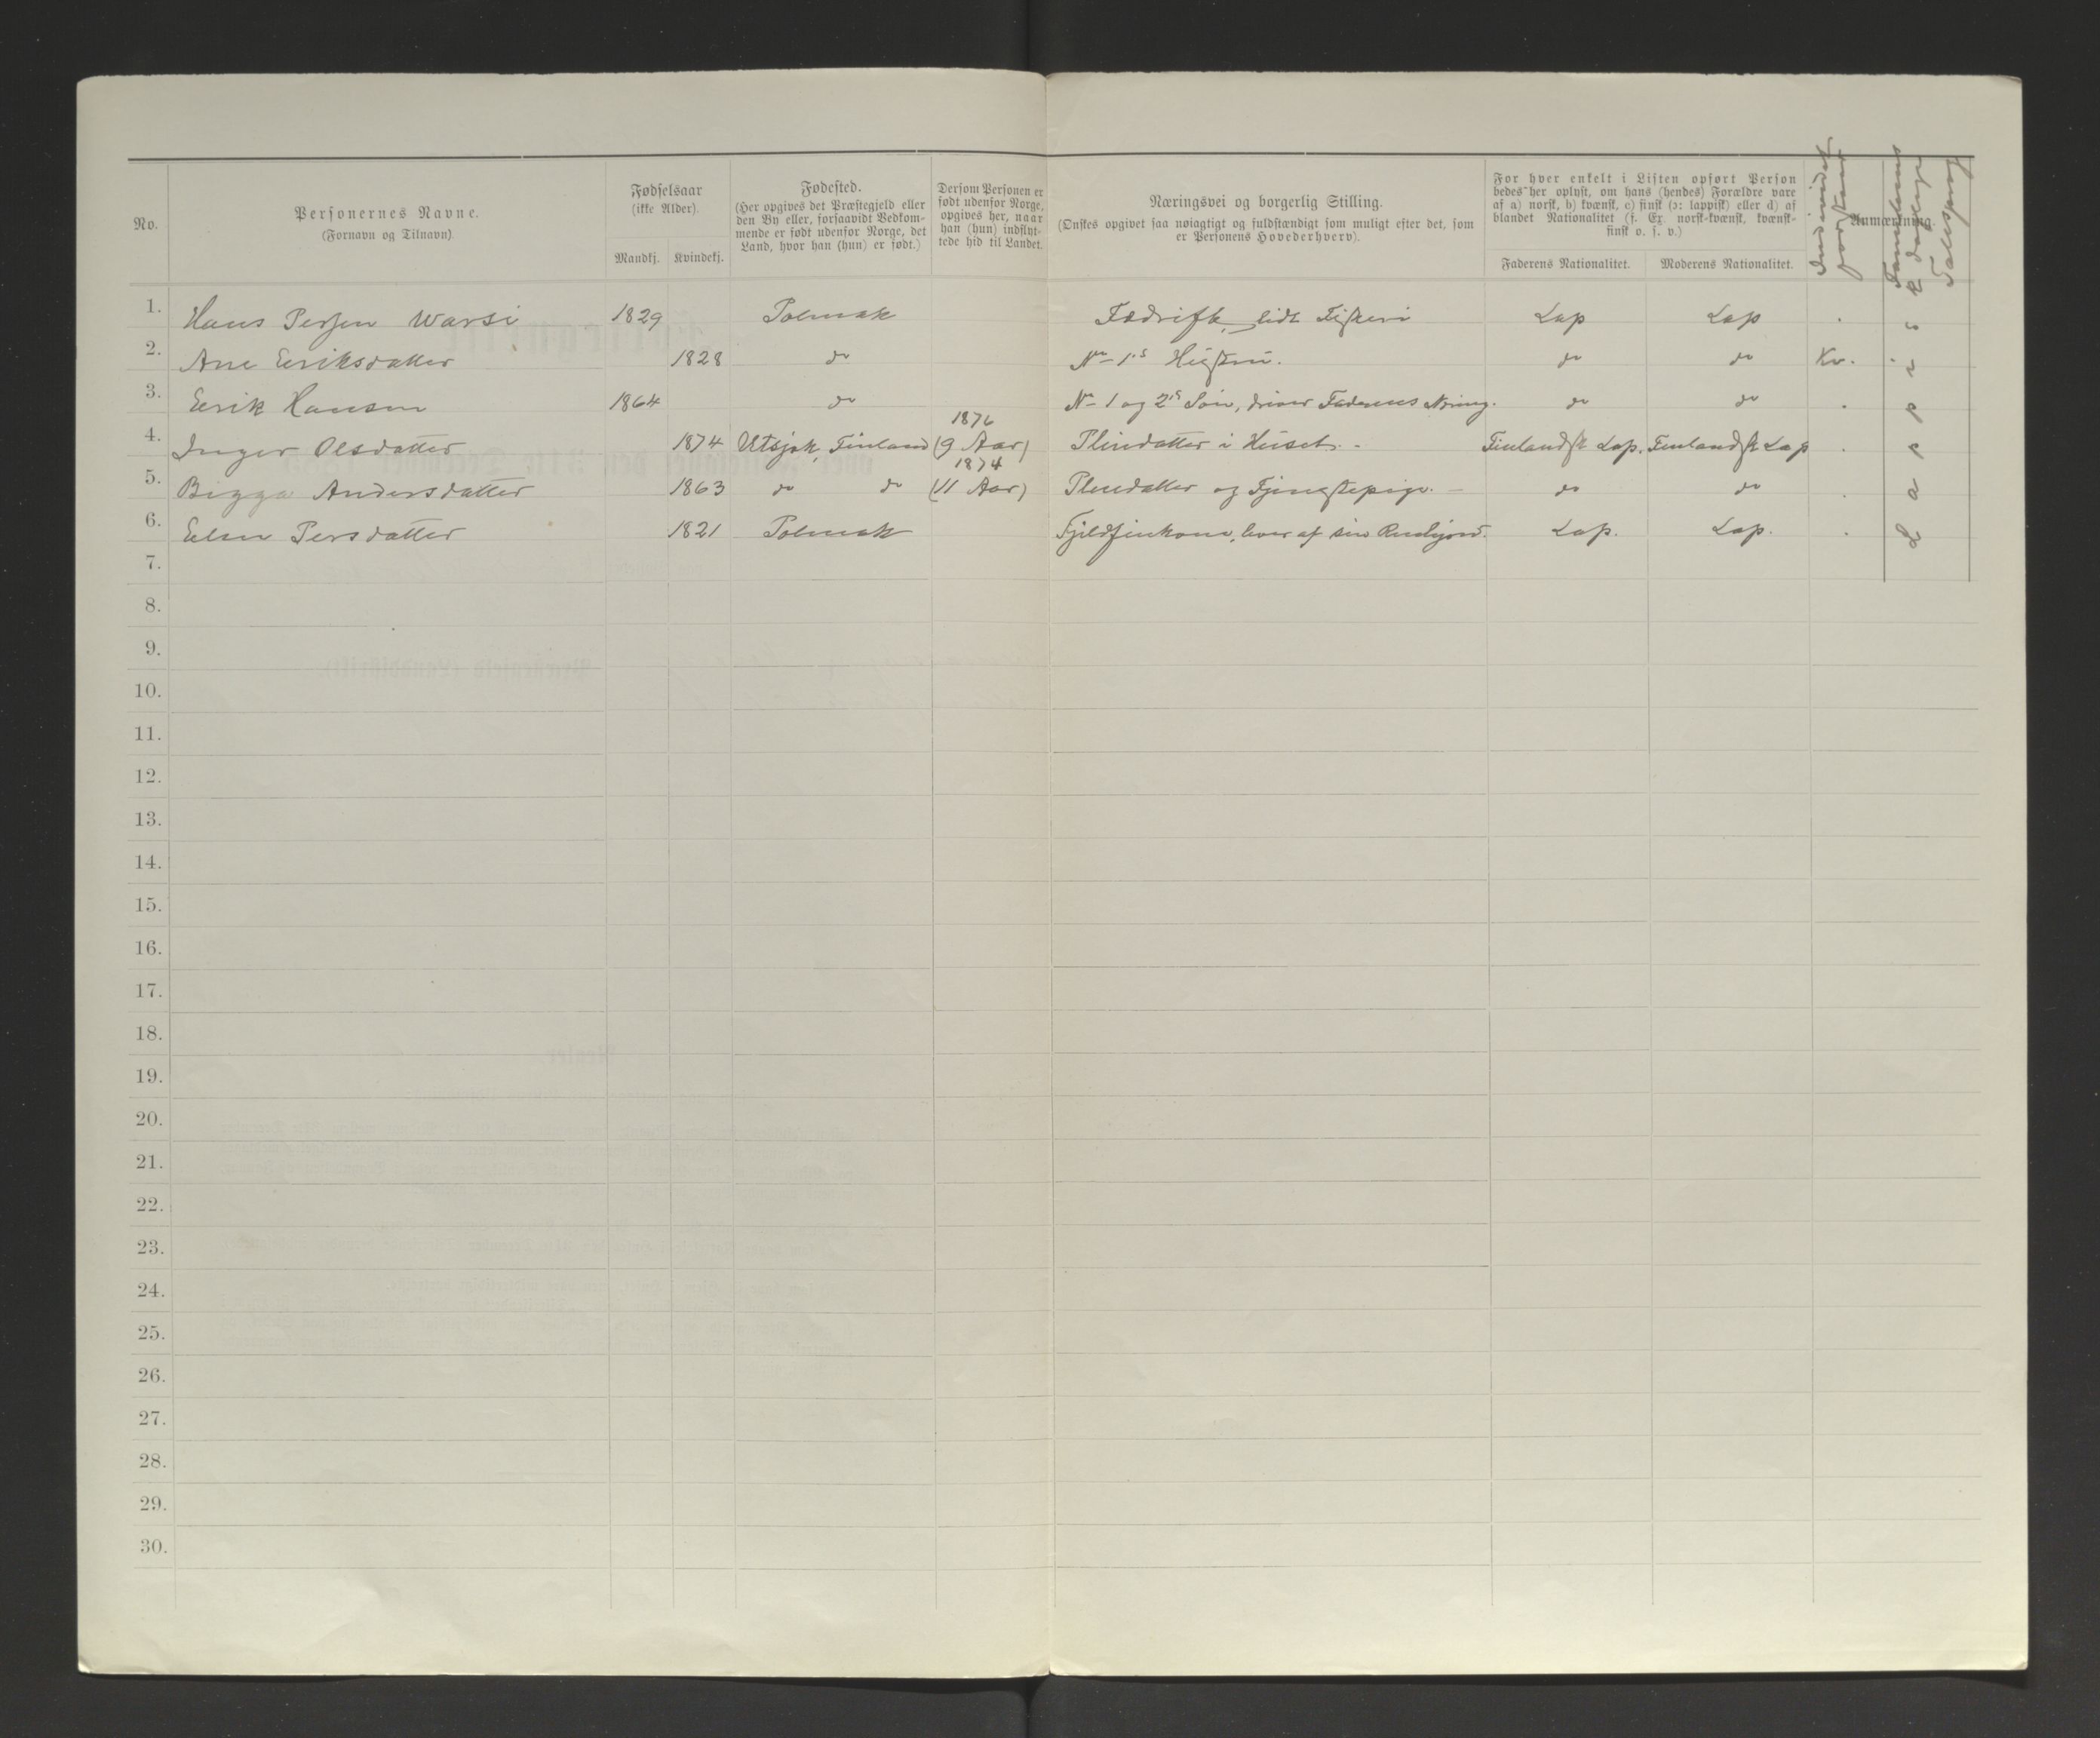 No.
Personernes Navne.
(Fornavn og Tilnavn).
Fødselsaar
(ikke Alder).
Mandkj. Kvindekj.
Fødested.
(Her opgives det Præstegjeld eller
den By eller, forsaavidt Vedkom-
mende er født udenfor Norge, det
Land, hvor han (hun) er født.)
Dersom Personen er
født udenfor Norge,
opgives her, naar
han (hun) indflyt-
tede hid til Landet.
Næringsvei og borgerlig Stilling.
(Ønskes opgivet saa nøiagtigt og fuldstændigt som muligt efter det, som
er Personens Hovederhverv).
For hver enkelt i Listen opført Person
bedes her oplyst, om hans (hendes) Forældre vare
af a) norsk, b) kvænsk, c) finsk (ɔ: lappisk) eller d) af
blandet Nationalitet (f. Ex. norsk-kvænsk, kvænsk-
finsk o. s. v.)
Faderens Nationalitet. Moderens Nationalitet.
Anmærkning.
Individet
forstaar
Familiens
daglige
Talesprog
1. Hans Persen Warsi 1829 Polmak Fædrift, lidt Fiskeri Lap Lap
2. Ane Eeriksdatter 1828 do No 1's Hustru. do do Kv.
3. Eerik Hansen 1864 do No 1 og 2's Søn, driver Faderens Næring. do do
1876
4. Inger Olsdatter 1874 Utsjok, Finland (9 Aar) Pleiedatter i Huset. Finlandsk Lap. Finlandsk Lap
1874
5. Bigga Andersdatter 1863 do do (11 Aar) Pleiedatter og Tjenestepige. do do
6. Elen Persdatter 1821 Polmak Fjeldfinkone, lever af sin Renshjord. Lap. Lap.
Lappisk
7.
8.
9.
10.
11.
12.
13.
14.
15.
16.
17.
18.
19.
20.
21.
22.
23.
24.
25.
26.
27.
28.
29.
30.